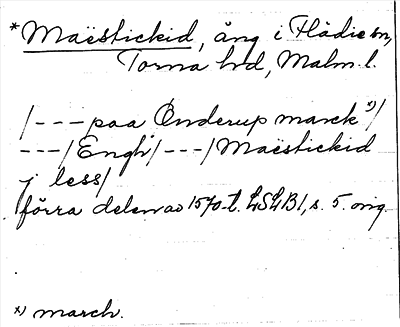 * Maëstickid, äng i Flädie sn,
Torna hd, Malm. l.
/--- paa Önderup marck x)/
---/Engh/---/Maëstickid
j less/
förra delen av 1570-t. LSLB1, s. 5. orig.
x) march.